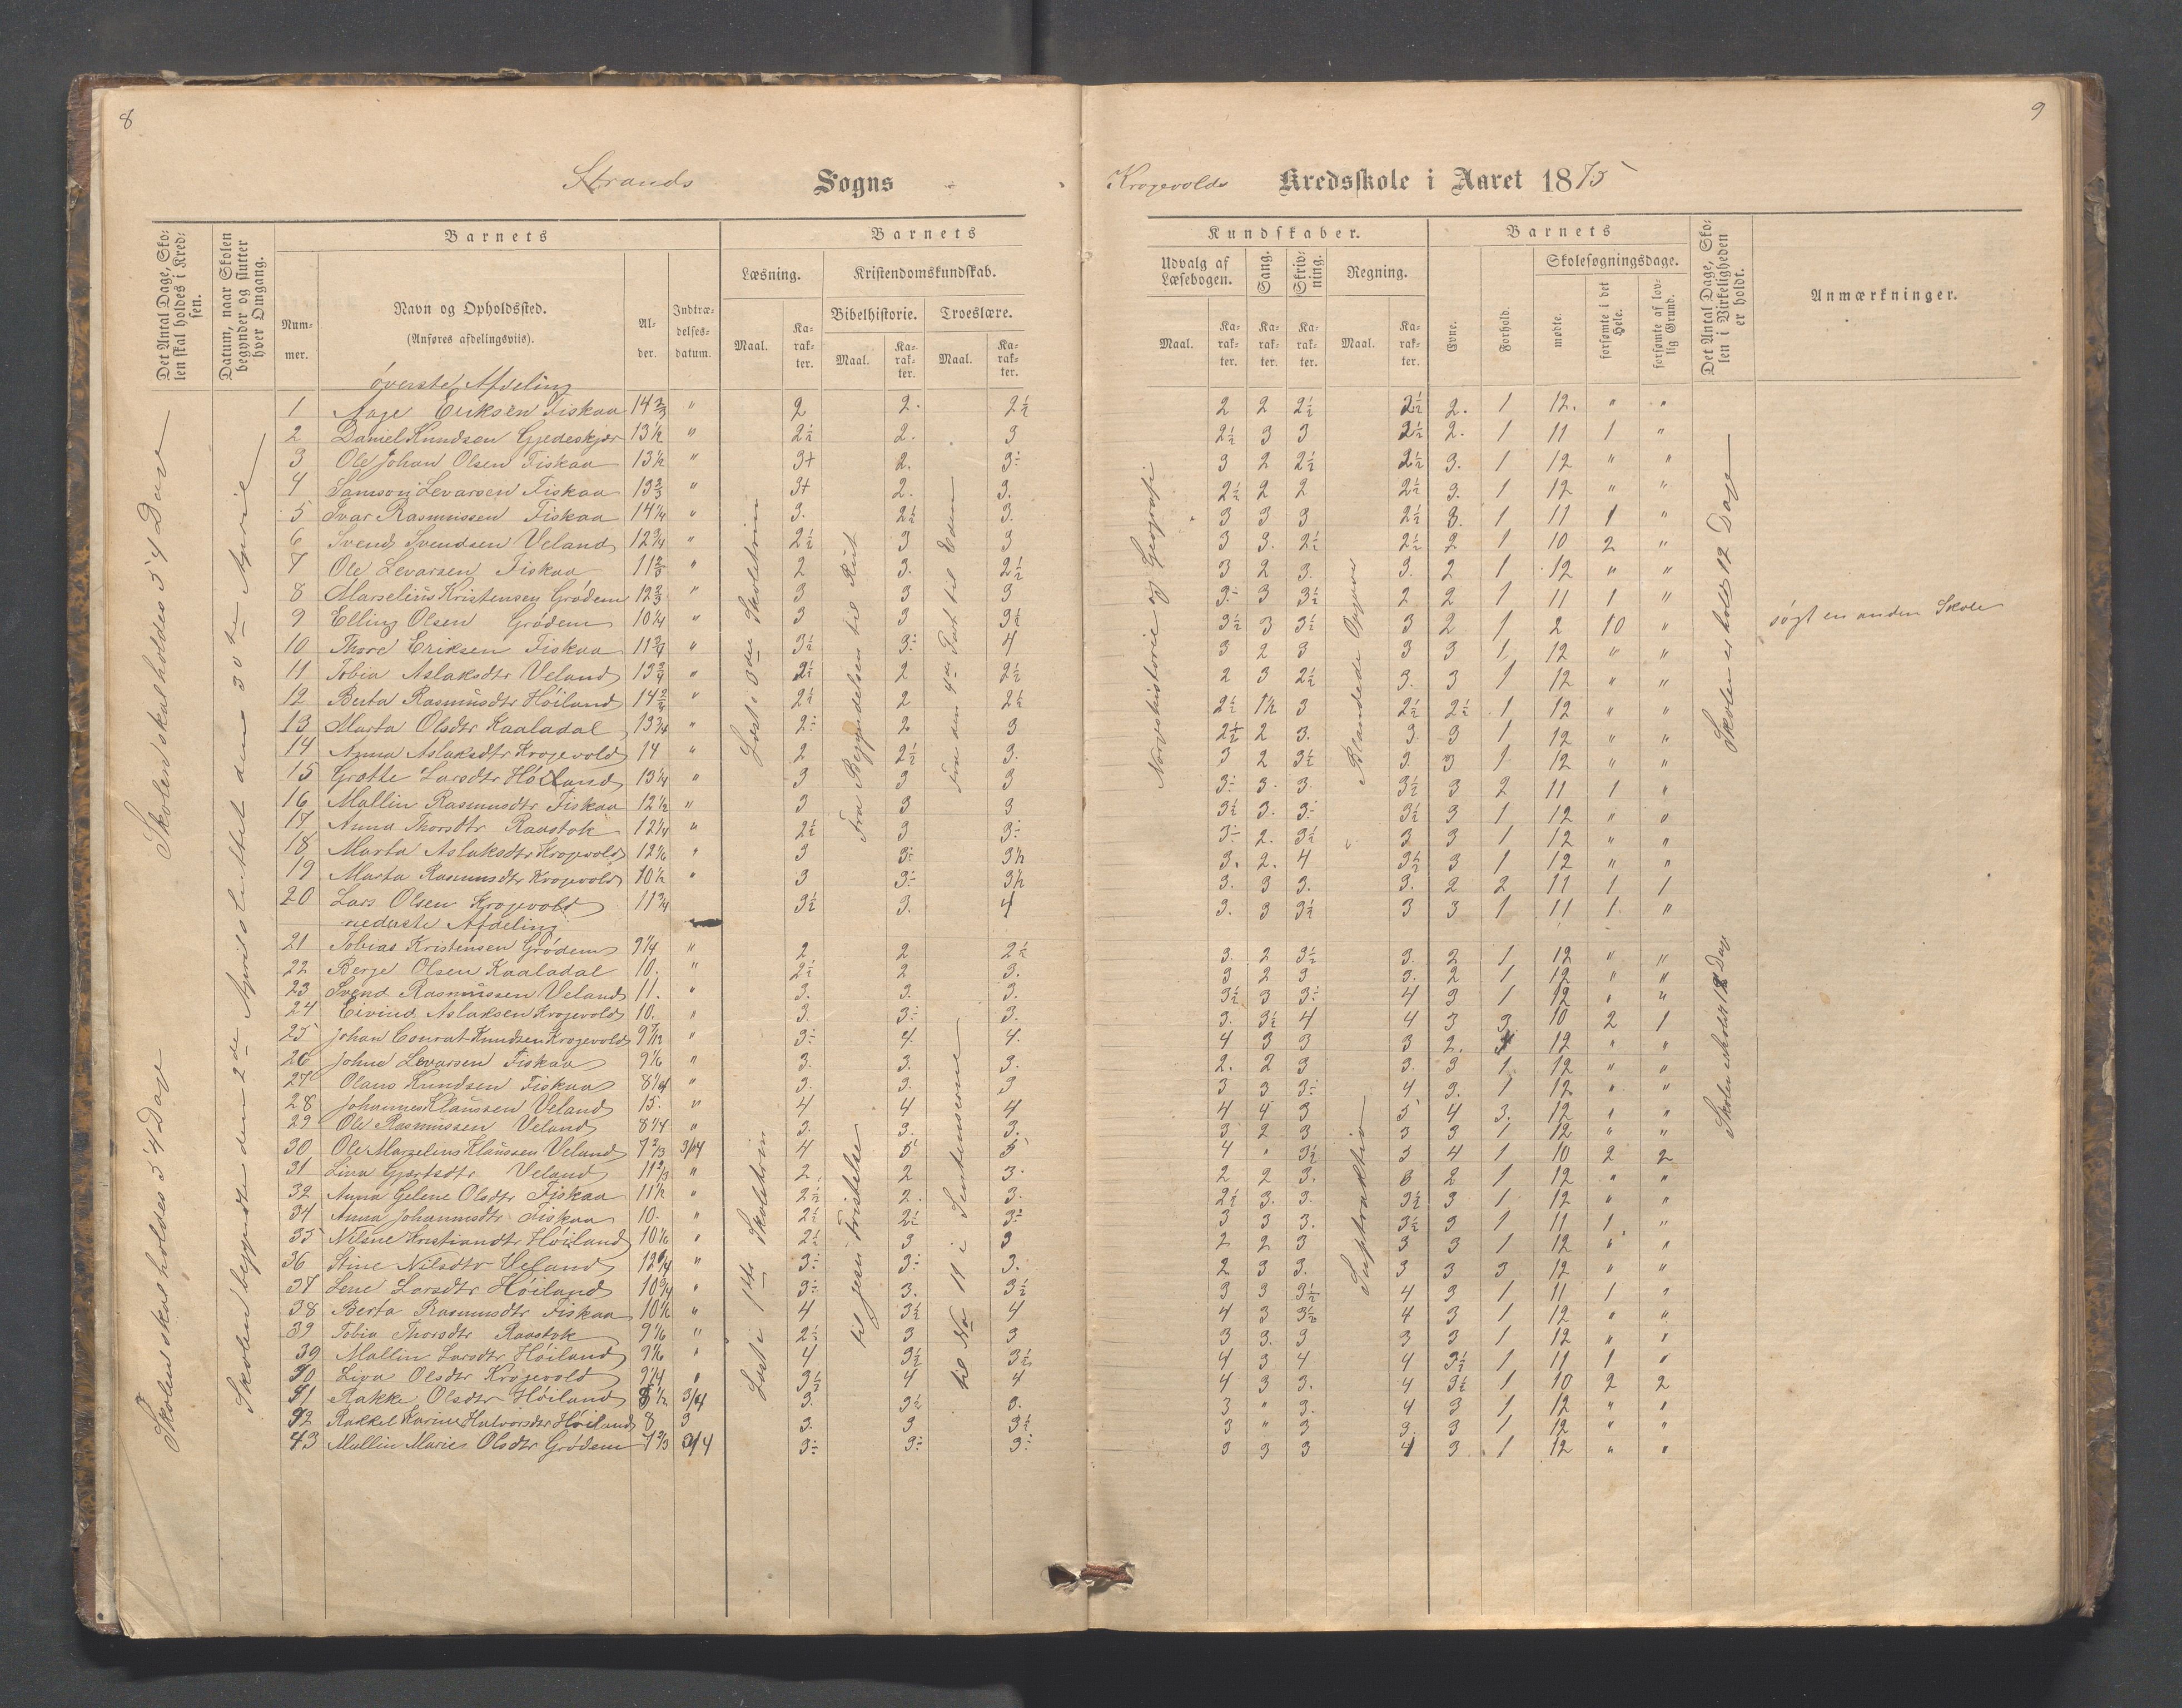 8
9
Strands Sogns
Krogevolds Kredsskole i Aaret 1875
Det Antal Dage, Skolen skal holdes i Kredsen.
Datum, naar Skolen begynder og slutter hver Omgang.
Barnets
Nummer.
Navn og Opholdssted.
(Anføres afdelingsviis).
Alder.
Indtrædelsesdatum.
Barnets
Læsning.
Kristendomskundskab.
Bibelhistorie. Troeslære.
Maal. Karakter. Maal. Karakter. Maal. Karakter.
Kundskaber.
Udvalg af Læsebogen. Sang. Skrivning. Regning.
Maal. Karakter. Karakter. Karakter. Maal. Karakter.
Barnets
Evne. Forhold.
Skolesøgningsdage.
mødte. forsømte i det Hele. forsømte af lovlig Grund.
Det Antal Dage, Skolen i Virkeligheden er holdt.
Anmærkninger.
Skolen skal holdes 54 Dage
Skolen skal holdes 54 Dage
Skolen begyndte den 2de April sluttet den 30te Aprie
Læst i 3die Skoletrin
Fra Begyndelsen til Rut
Fra den 4de Part til Eden
Norgeshistorie og Geografi
Blandede Opgaver
Skolen er holdt 12 Dage
Læst i 1ste Skoletrin
til Jesu Fristelse
til No 11 i Sentenserne
Suptraktion
Skolen er holdt 12 Dage
øverste Afdeling
1 Aage Eriksen Fiskaa 14 2/3 " 2 2. 2½ 2 2 2½ 2½ 2. 1 12. " "
2 Daniel Knudsøn Gjedeskjær 13½ " 2½ 2. 3 2½ 3 3 2½ 2. 1 11 1 "
3 Ole Johan Olsen Fiskaa 13½ " 3+ 2. 3÷ 3 2 2½ 2½ 3. 1 12 " "
4 Samson Levarsen Fiskaa 13 2/3 " 3+ 2. 3. 2½ 2 2 2½ 3. 1 12 " "
5 Ivar Rasmussen Fiskaa 14¼ " 3. 2½ 3. 3 3 3 2½ 3. 1 11 1 "
6 Svend Svendsen Veland 12¾ " 2½ 3 3 3 3. 2½ 2½ 2 1 10 2 "
7 Ole Levarsen Fiskaa 11 2/3 " 2 3. 2½ 3 2 3. 3. 2 1 12 " "
8 Marselius Kristensen Grødem 12 2/3 " 3 3 3 3÷ 3 3½ 2 2 1 11 1 "
9 Elling Olsen Grødem 10¼ " 3 3 3½ 3½ 3 3½ 3 2 1 2 10 " søgt en anden Skole
10 Thore Eriksen Fiskaa 11¾ " 3½ 3÷ 4 3 2 3 3 3 1 12 " "
11 Tobia Aslaksdtr Veland 13¾ " 2½ 2 2½ 2 3 2½ 3. 3 1 12 " "
12 Berta Rasmusdtr Høiland 14 2/4 " 2½ 2 2½ 2½ 1½ 3 2½ 2½ 1 12 " "
13 Marta Olsdtr Kaaladal 13¾ " 2÷ 2 3 2½ 2 3. 3. 3 1 12 " "
14 Anna Aslaksdtr Krogevold 14 " 2 2½ 3. 3 2 3½ 3. 3 1 12 " "
15 Grotte Larsdtr Høiland 13¼ " 3 3 3 3÷ 3. 3. 3½ 3 2 11 1 "
16 Mallin Rasmusdtr Fiskaa 12½ " 3 3 3 3½ 3. 3÷ 3½ 3 1 12 " "
17 Anna Thorsdtr Raastok 12¼ " 2½ 3 3÷ 3÷ 2. 3½ 3 3 1 12 " "
18 Marta Aslaksdtr Krogevold 12 1/6 " 3 3÷ 3½ 3. 2. 4 3½ 3 1 12 " "
19 Marta Rasmusdtr Krogevold 10½ " 3 3÷ 3½ 3. 3 3. 3. 2 2 11 1 1
20 Lars Olsen Krogevold 11¾ 3½ 3. 4 3. 3 3½ 3 3 1 11 1 "
nederste Afdeling
21 Tobias Kristensen Grødem 9¼ " 2 2 2½ 3. 2 3½ 3. 2 1 12 " "
22 Berge Olsen Kaaladal 10. " 2½ 2 3. 3 2 3 3. 2 1 12 " "
23 Svend Rasmussen Veland 11. " 3. 3. 3. 3½ 3 3÷ 4 3 1 12 " "
24 Eivind Aslaksen Krogevold 10. " 3. 3÷ 3. 3. 3½ 4 4 3 3 10 2 1
25 Johan Conrat Knudsen Krogevold 9 7/12 " 3÷ 4. 4. 4 3 3 3 2. 12 " "
26 John Levarsen Fiskaa 9 1/6 " 3. 3. 3. 2. 2 3 3. 3 1 12 " "
27 Olaus Knudsen Fiskaa 8¼ " 3. 3. 3 3 3 3÷ 4 3. 1 12 " "
28 Johannes Klaussen Veland 15. " 4 4 4 4 4 3 5 4 3. 12 " "
29 Ole Rasmussen Veland 8¼ " 3. 3. 3. 3 2 3 3 3 1 12 " "
30 Ole Marselius Klaussen Veland 7 2/3 3/4 4 5 5 4 " 3½ 5 4 1 10 2 2
31 Lina Gjertsdtr Veland 11 2/3 " 2. 2 3. 2 2 3. 3 2 1 12 " "
32 Anna Gelene Olsdtr Fiskaa 11½ " 2½ 2. 3. 2½ 3. 3. 3½ 3 1 12 " "
34 Anna Johannesdtr Fiskaa 10. " 2½ 2½ 3÷ 3 3 3. 3½ 3 1 11 1 "
35 Nilsine Kristiandtr Høiland 10 1/6 " 2½ 3 3 2 2 3 3 3 1 12 " "
36 Stine Nilsdtr Veland 12¼ " 3÷ 3÷ 3. 2 3 3. 3 3 3 12 " "
37 Lene Larsdtr Høiland 10¾ " 3÷ 3. 3½ 3 3 3½ 4 3 1 11 1 "
38 Berta Rasmusdtr Fiskaa 10½ " 4 3½ 4 4 3 3½ 4 3 1 12 " "
39 Tobia Thorsdtr Raastok 9 1/6 " 2½ 3 3 3 3. 3 3 3 1 12 " "
39 Mallin Larsdtr Høiland 9 1/6 " 4 3½ 3½ 4 3 4 4 3½ 1 11 1 "
40 Liva Olsdtr Krogevold 9¼ " 3½ 4 4 4 3 3. 4 3½ 1 10 2 2
41 Rakke Olsdtr Høiland 8½ 3/4 3. 3½ 3. 3 " 3. 4 3 1 12 " "
42 Rakkel Karine Halvorsdtr Høiland 8 3 3. 3 3½ 3 " 3 3. 3 1 12 " "
43 Mallin Marie Olsdtr Grødem 7 2/3 3/4 3÷ 3÷ 3÷ 3 3 3 4 3 1 12 " "